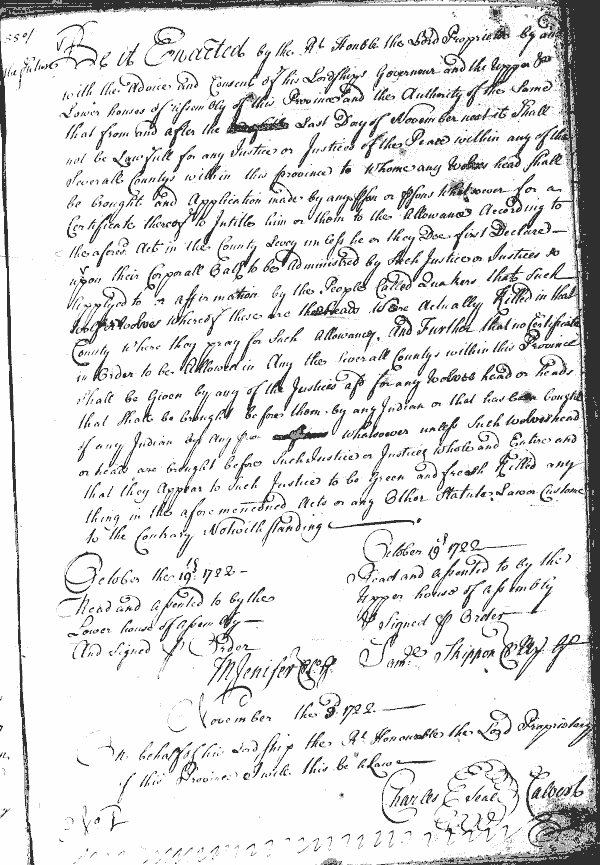 Be it Enacted by the Rt Honble the Lord Proprietr by and
with the Advice and Consent of his Lordships Governour and the Upper &
Lower houses of assembly of this Province and the Authority of the Same
that from and after the Last Day of November next it Shall
not be Lawfull for any Justice or Justices of the Peace within any of the
Severall Countys within this province to whome any Wolves head Shall
be brought and Application made by any pson or psons whatsoever for a
Certificate thereof to Intitle him or them to the Allowance According to
the afores. Act in the County Levy unless he or they Doe first Declare
upon their Corporall Oath to be Administred by Such Justice or Justices so
applyed to or affirmation by the People Called Quakers that Such
Wolfe or Wolves whereof these are the heads Were Actually Killed in that
County where they pray for Such Allowance, And Further that no Certificate
in Order to be Allowed in Any the severall Countys within this Province
Shall be Given by any of the Justices afs for any Wolves head or heads
that Shall be brought before them by any Indian or that has been bought
of any Indian by Any pson whatsoever unless Such Wolves head
or heads are brought before Such Justice or Justices whole and Entire and
that they Appear to Such Justice to be Green and fresh Killed any
thing in the afore mencioned Acts or any Other Statute Law or Custome
to the Contrary Notwithstanding
October the 19th 1722
Read and assented to by the
Lower house of assembly
And signed p Order
MJenifer Cl
October 19th 1722
Read and assented to by the
Upper house of assembly
Signed p Order
Saml Skippon
November the 3d 1722
On behalf of his Lordship the Rt Honourable the Lord Proprietary
of this Province I will this be a Law
Charles Seal Calvert